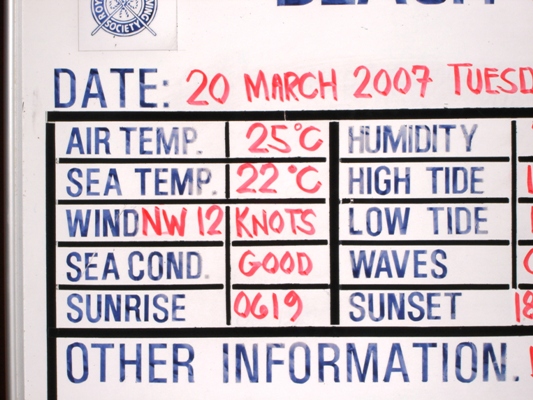 DATE: 20 MARCH 2007
AIR TEMP. 25°C HUMIDITY
SEA TEMP. 22°C HIGH TIDE
WIND NW 12 KNOTS LOW TIDE
SEA COND. GOOD WAVES
SUNRISE 0619 SUNSET
OTHER INFORMATION.
SOCIETY